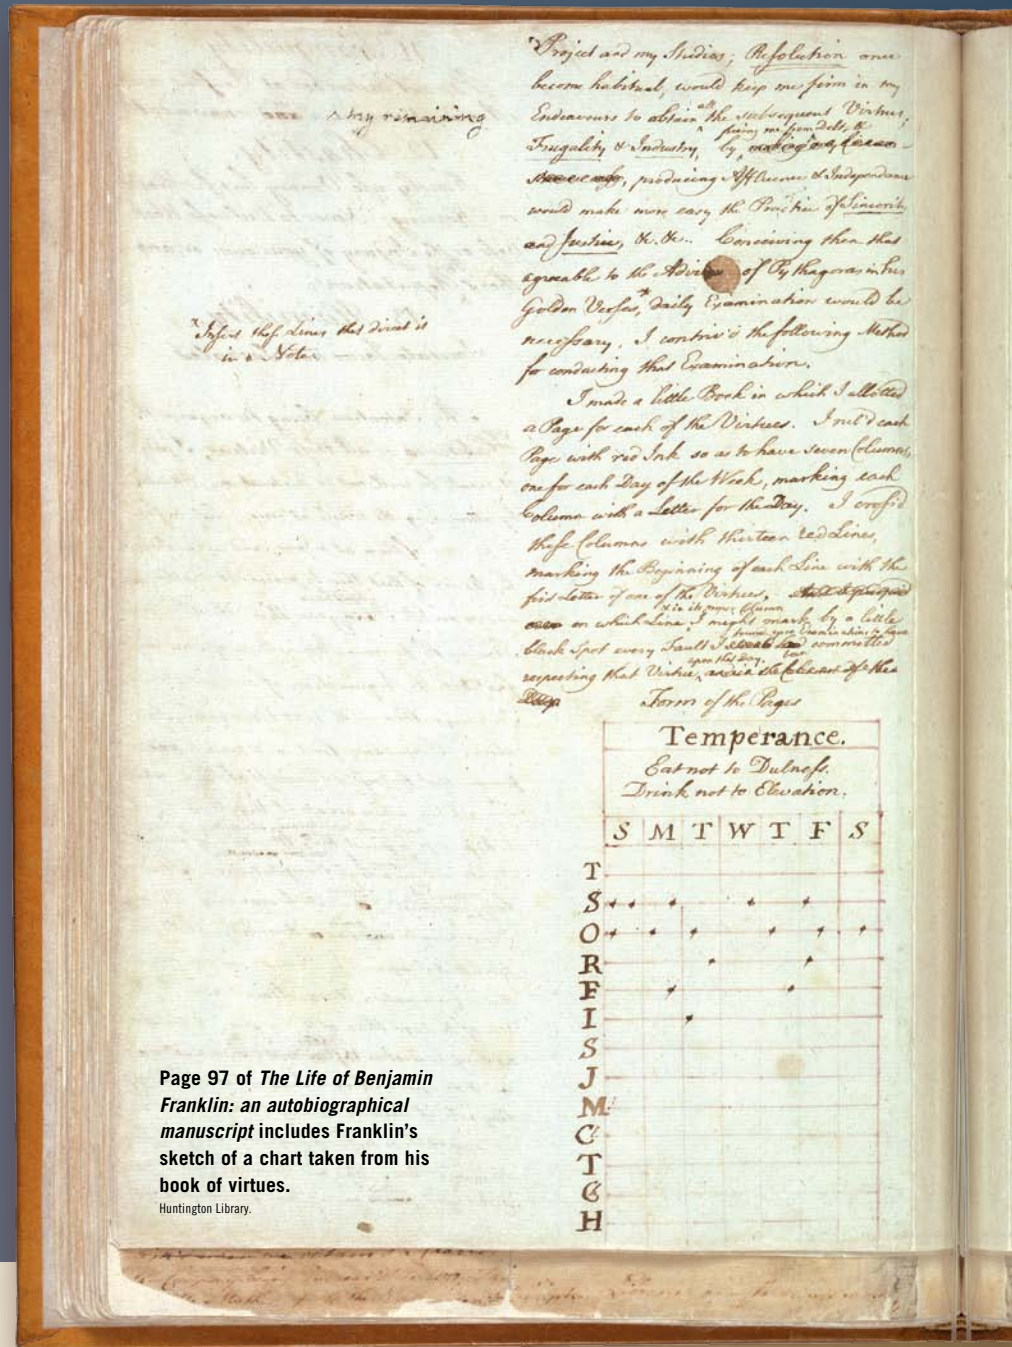 my remaining
Insert those Lines that direct it
in a Note
Project and my Studies; Resolution once
become habitual, would keep me firm in my
Endeavours to obtain all the subsequent Virtues;
freeing me from Debt, &
Frugality & Industry, by
producing Affluence & Independance
would make more easy the Practice of Sincerity
and Justice, &c. &c.. Conceiving then that
agreable to the Advice of Pythagoras in his
Golden Verses, daily Examination would be
necessary, I contriv'd the following Method
for conducting that Examination.
I made a little Book in which I allotted
a Page for each of the Virtues. I rul'd each
Page with red Ink so as to have seven Columns,
one for each Day of the Week, marking each
Column with a Letter for the Day. I cross'd
these Columns with thirteen red Lines,
marking the Beginning of each Line with the
first Letter of one of the Virtues,
& in its proper Column
on which Line I might mark by a little
black Spot every Fault I committed
upon that Day.
respecting that Virtue
Form of the Pages
Temperance.
Eat not to Dulness.
Drink not to Elevation.
S M T W T F S
T
S
O
R
F
I
S
J
M
C
T
C
H
Page 97 of The Life of Benjamin
Franklin: an autobiographical
manuscript includes Franklin's
sketch of a chart taken from his
book of virtues.
Huntington Library.